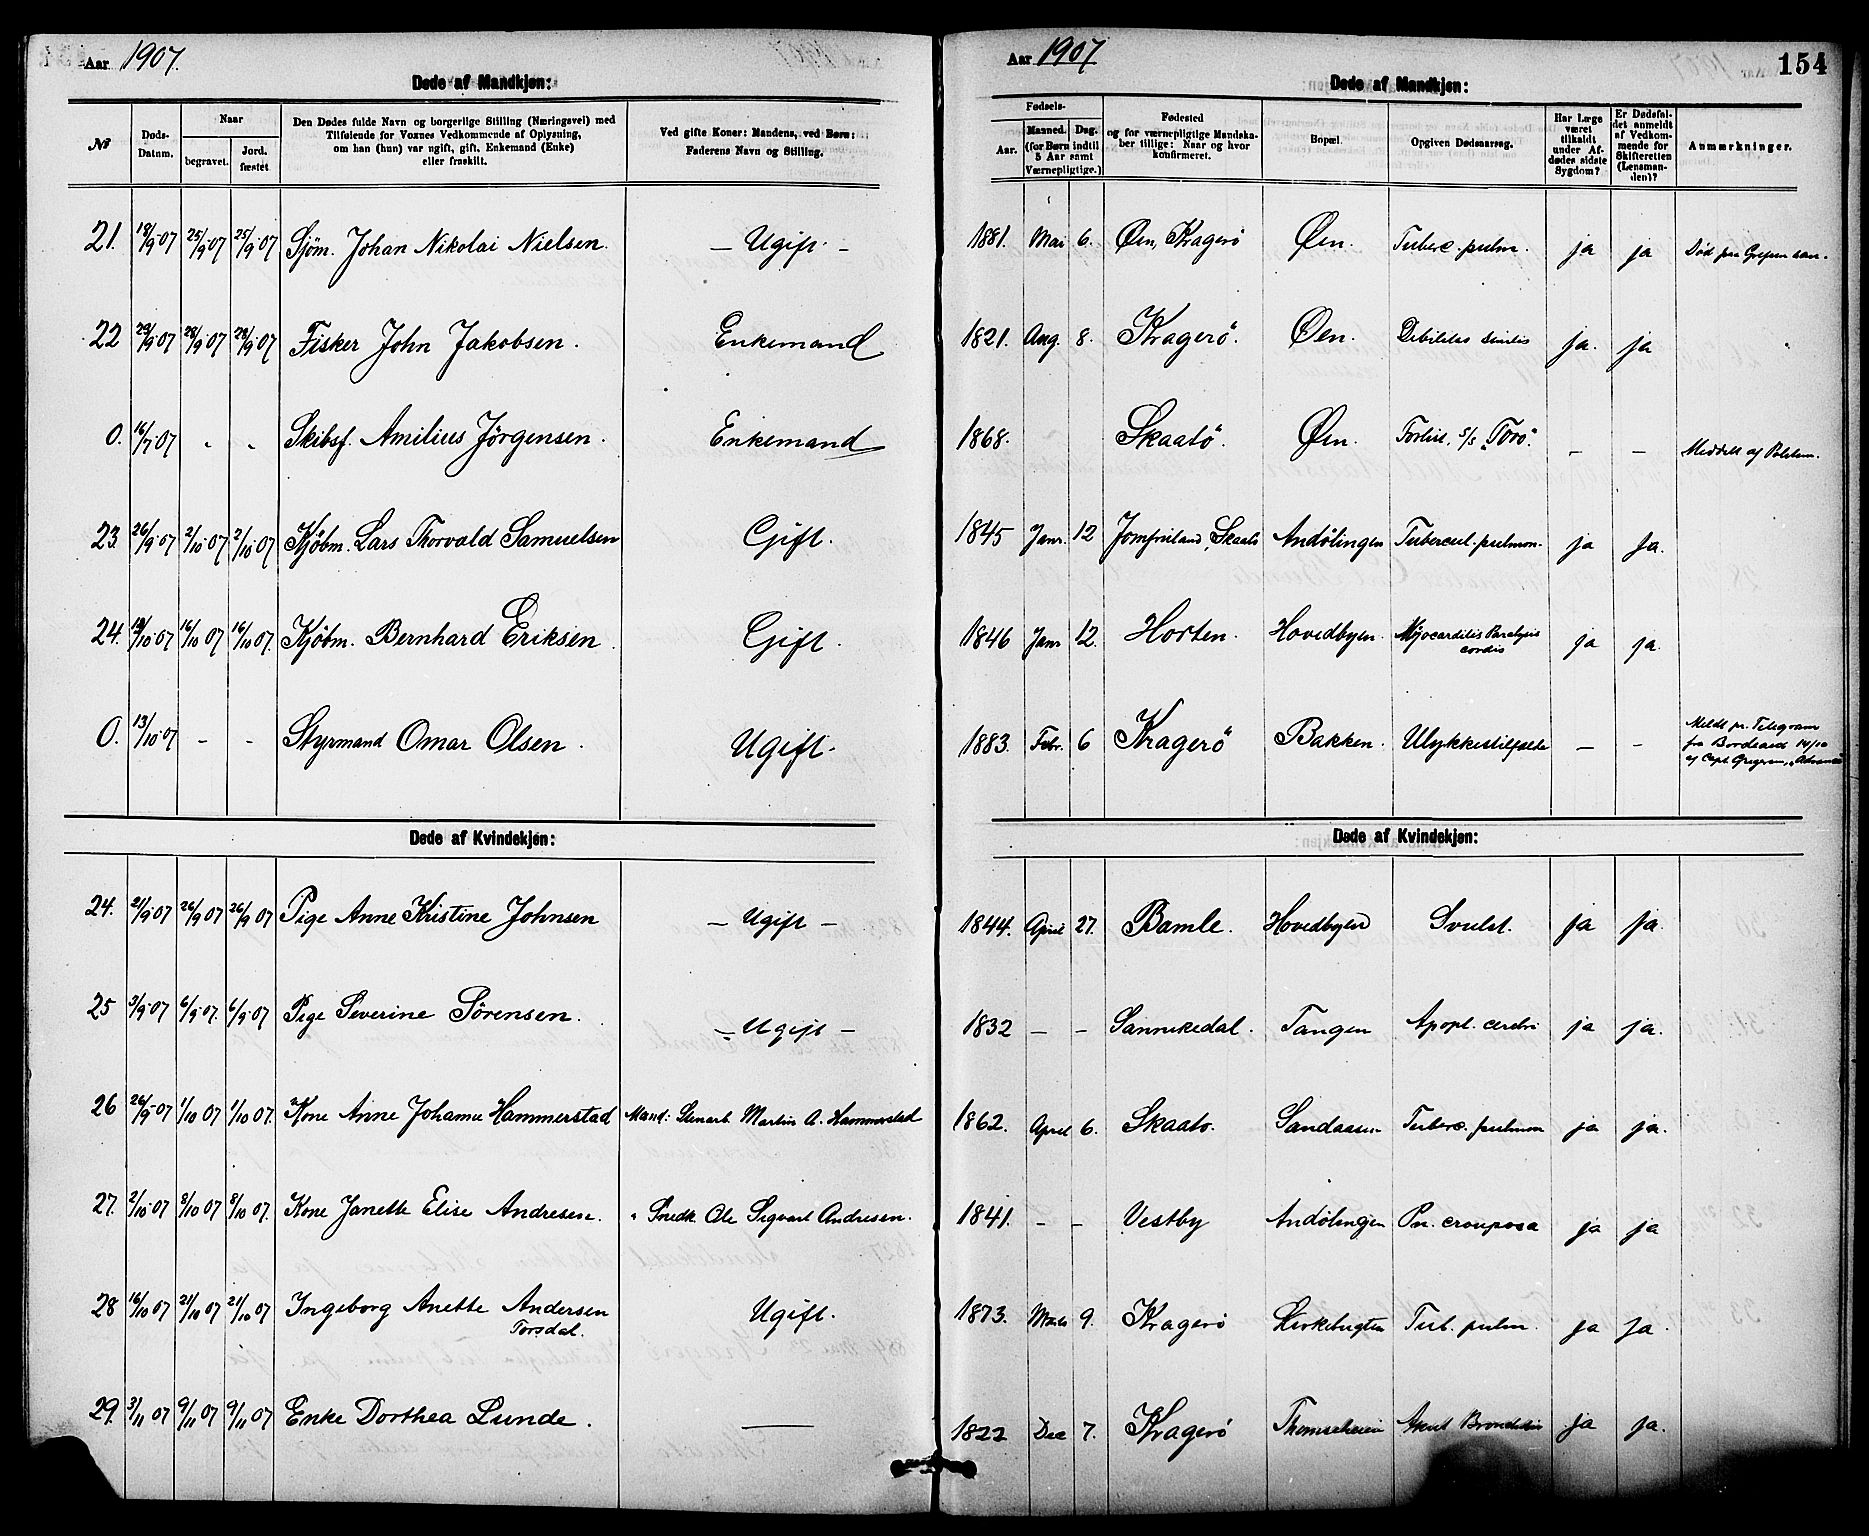 Aar 1907.
Døde af Mandkjøn:
№
Døds-Datum.
Naar
begravet.
Jord. fæstet
Den Dødes fulde Navn og borgerlige Stilling (Næringsvei) med
Tilføiende for Voxnes Vedkommende af Oplysning,
om han (hun) var ugift, gift, Enkemand (Enke)
eller fraskilt.
Ved gifte Koner: Mandens, ved Børn:
Faderens Navn og Stilling.
21. 18/9 07 25/9 07 25/9 07 Sjøm. Johan Nikolai Nielsen. — Ugift —
22 28/9 07 28/9 07 Fisker John Jakobsen. Enkemand
0. 16/7 07 - - Skibsf. Amilius Jörgensen. Enkemand
23. 26/9 07 2/10 07 2/10 07 Kjöbm. Lars Thorvald Samuelsen Gift.
24. 16/10 07 16/10 07. Kjöbm. Bernhard Eriksen. Gift.
0. 13/10 07 - - Styrmand Omar Olsen. Ugift.
Døde af Kvindekjøn:
24. 21/9 07 26/9 07 26/9 07 Pige Anne Kristine Johnsen — Ugift —
25 3/9 07 6/9 07. 6/9 07 Pige Severine Sörensen. — Ugift —
26 26/9 07 1/10 07 1/10 07. Kone Anne Johanne Hammerstad Mand: Stenarb. Martin A. Hammerstad
27. 2/10 07 8/10 07 8/10 07. Kone Janette Elise Andresen. " Snedk. Ole Sigvart Andresen.
28 16/10 07 21/10 07 21/10 07 Ingeborg Anette Andersen Ugift.
Torsdal.
29. 3/11 07 9/11 07 9/11 07 Enke Dorthea Lunde. —
Aar 1907
154
Døde af Mandkjøn:
Fødsels-
Aar.
Maaned. Dag.
(for Børn indtil
5 Aar samt
Værnepligtige.)
Fødested
og for værnepligtige Mandska-
ber tillige: Naar og hvor
konfirmeret.
Bopæl.
Opgiven Dødsaarsag.
Har Læge
været
tilkaldt
under Af-
dødes sidste
Sygdom?
Er Dødsfal-
det anmeldt
af Vedkom-
mende for
Skifteretten
(Lensman-
den)?
Anmærkninger.
1881. Mai 6. Øen, Kragerö Øen. Tuberc. pulm. ja ja Död paa
1821. Aug. 8. Kragerö. Øen. Debilitas senilis ja. ja
1868. Skaatö. Øen. Forlist, S/S "Torö". — — Meddelt af
1845 Janr. 12 Jomfruland, Skaatö Andölingen Tubercul. pulmon. ja ja.
1846 Janr 12. Horten. Hovedbyen. Myocarditis Paralysis cordis ja ja.
1883. Febr. 6 Kragerö Bakken. Ulykkestilfælde — — Meldt pr. Telegram
fra Bordeaux 14/10
af Capt.
Døde af Kvindekjøn:
1844. April 27. Bamle. Hovedbyen Svulst. ja ja.
1832 — — Sannikedal. Tangen Apopl. cerebri ja ja.
1862. April 6. Skaatö. Sandaasen Tuberc. pulmon ja ja.
1841. — — Vestby Andölingen Pn. crouposa ja ja
1873. Marts 9. Kragerö Kirkebugten Tub. pulm. ja ja.
1822 Dec 7. Kragerö Akut Bronchitis ja ja.